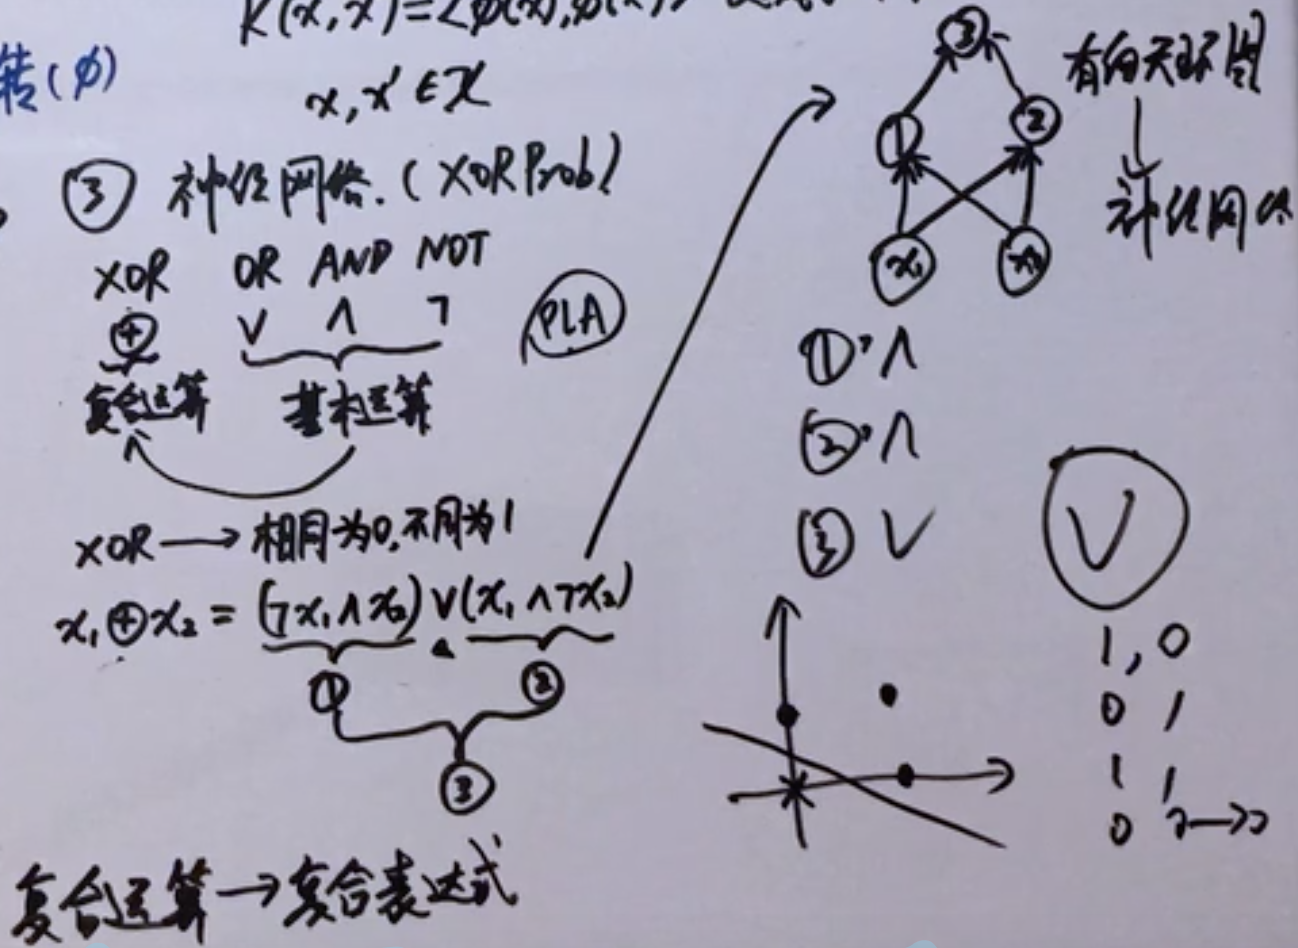 K(x,x')=<φ(x),φ(x')>
转(φ)
x,x'∈X
③ 神经网络.(XOR Prob)
XOR OR AND NOT
⊕ ∨ ∧ ¬
PLA
复合运算 基本运算
XOR→相同为0,不同为1
x₁⊕x₂=(¬x₁∧x₂)∨(x₁∧¬x₂)
① ②
③
复合运算→复合表达式
③
① ②
x₁ x₂
有向无环图
↓
神经网络
①:∧
②:∧
③ ∨
∨
1,0
0 1
1 1